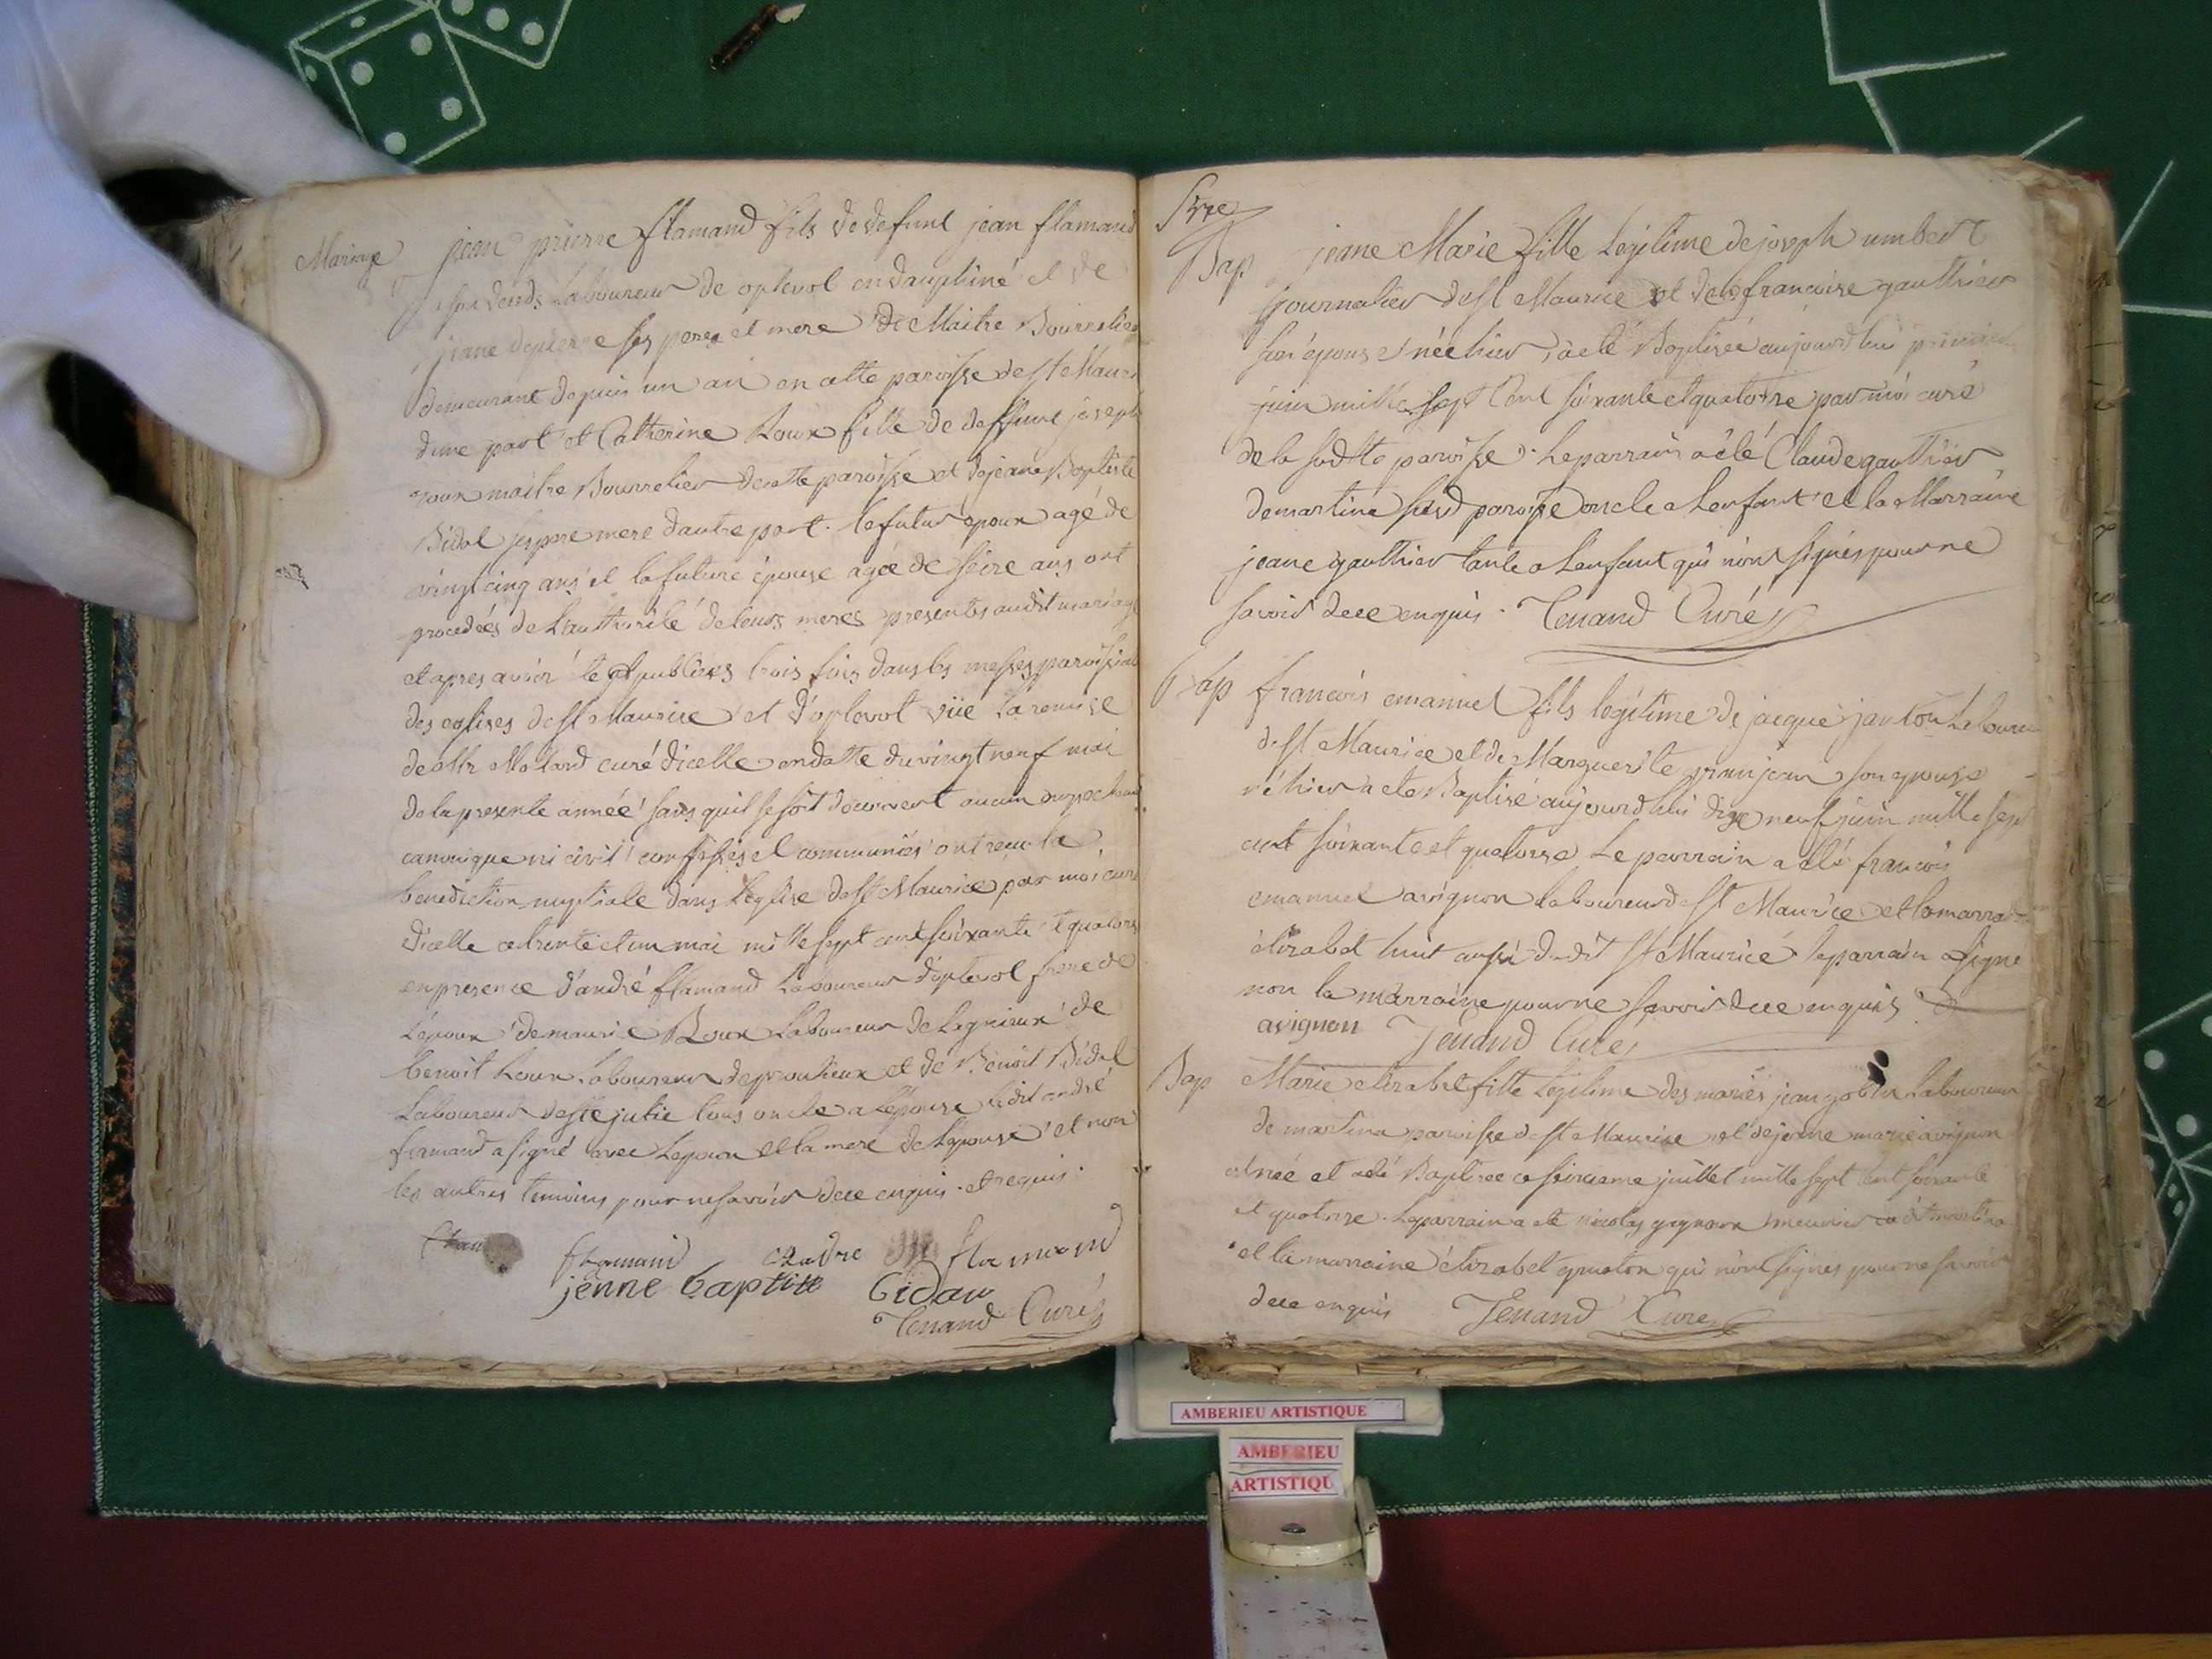 Mariage
jean pierre flamand fils de defunt jean flamand
Laboureur de optevol en dauphiné et de
jeane depierre ses peres et mere Maitre Bourrelier
demeurant depuis un an en cette paroisse de st Mauri
dune part et Catherine Roux fille de deffunt joseph
roux maitre Bourrelier de cette paroisse et de jeane Baptiste
Bidal ses pere mere dautre part. le futur epoux agé de
vingt cinq ans et la future épouse agée de seize ans ont
procedées de L'authorité de leurs meres presentes audit mariage
et apres avoir été publiées trois fois dans les messes paroissial
des eglises de st Maurice et d'optevol vüe la remise
de Mr curé dicelle en datte du vingt neuf mai
de la presente année sans quil se soit decouvert aucun empechem
canonique ni civil confessés et communiés ont recu la
benediction nuptiale dans Leglise de st Maurice par moi curé
dicelle ce trente et un mai mille sept cent soixante et quatorze
en presence d'andré flamand Laboureur d'optevol frere de
Lepoux de mauric Roux Laboureur de Lagnieux de
benoit Roux Laboureur de proulieux et de Benoit Bidal
Laboureur de ste julie tous oncle a Lépouse ledit andré
flamand a signé avec Lepoux et la mere de Lepouse et non
les autres temoins pour ne savoir de ce enquis et requis.
flamand andre flamand
jenne baptitte bidau
Tenand Curé
Bap
jeane Marie fille Legitime de joseph umbert
journalier de st Maurice et de francoise gauthier
son epouse née hier a eté Baptisée aujourd'hui premier
juin mille sept Cent soixante et quatorze par moi curé
de la susdtte paroisse. Le parrain a été Claude gauthier
de martina susd paroisse oncle a Lenfant et la Marraine
jeane gauthier tante a Lenfant qui n'ont signés pour ne
savoir de ce enquis. Tenand Curé
Bap
francois emanuel fils legitime de jacque janton Laboureu
de st Maurice et de Marguerite granjean son epouse
né hier a ete Baptisé aujourd'hui dix neuf juin mille sept
cent soixante et quatorze Le parrain a été francois
emanuel avignon laboureur de st Maurice et la marraine
elizabet huit aussi dudit st Maurice le parrain a signé
non la marraine pour ne savoir de ce enquis
avignon Tenand Curé
Bap
Marie elizabet fille Legitime des mariés jean gobet Laboureur
de martina paroisse de st Maurice et de jeane marie avignon
est née et a été Baptisée ce seizieme juillet mille sept cent soixante
et quatorze. Le parrain a eté nicolas gagneux meunier audit martina
et la marraine élizabet quoton qui n'ont signés pour ne savoir
de ce enquis Tenand Curé
AMBERIEU ARTISTIQUE
AMBERIEU
ARTISTIQU